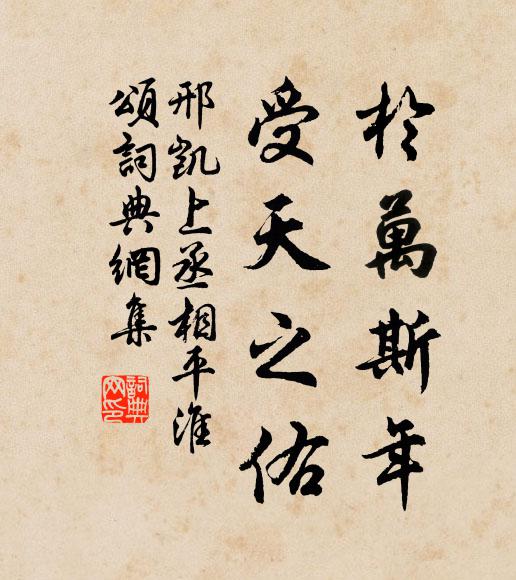 於萬斯年
受天之佑
邢凱上丞相平淮
頌詞典網集
詞典
网印